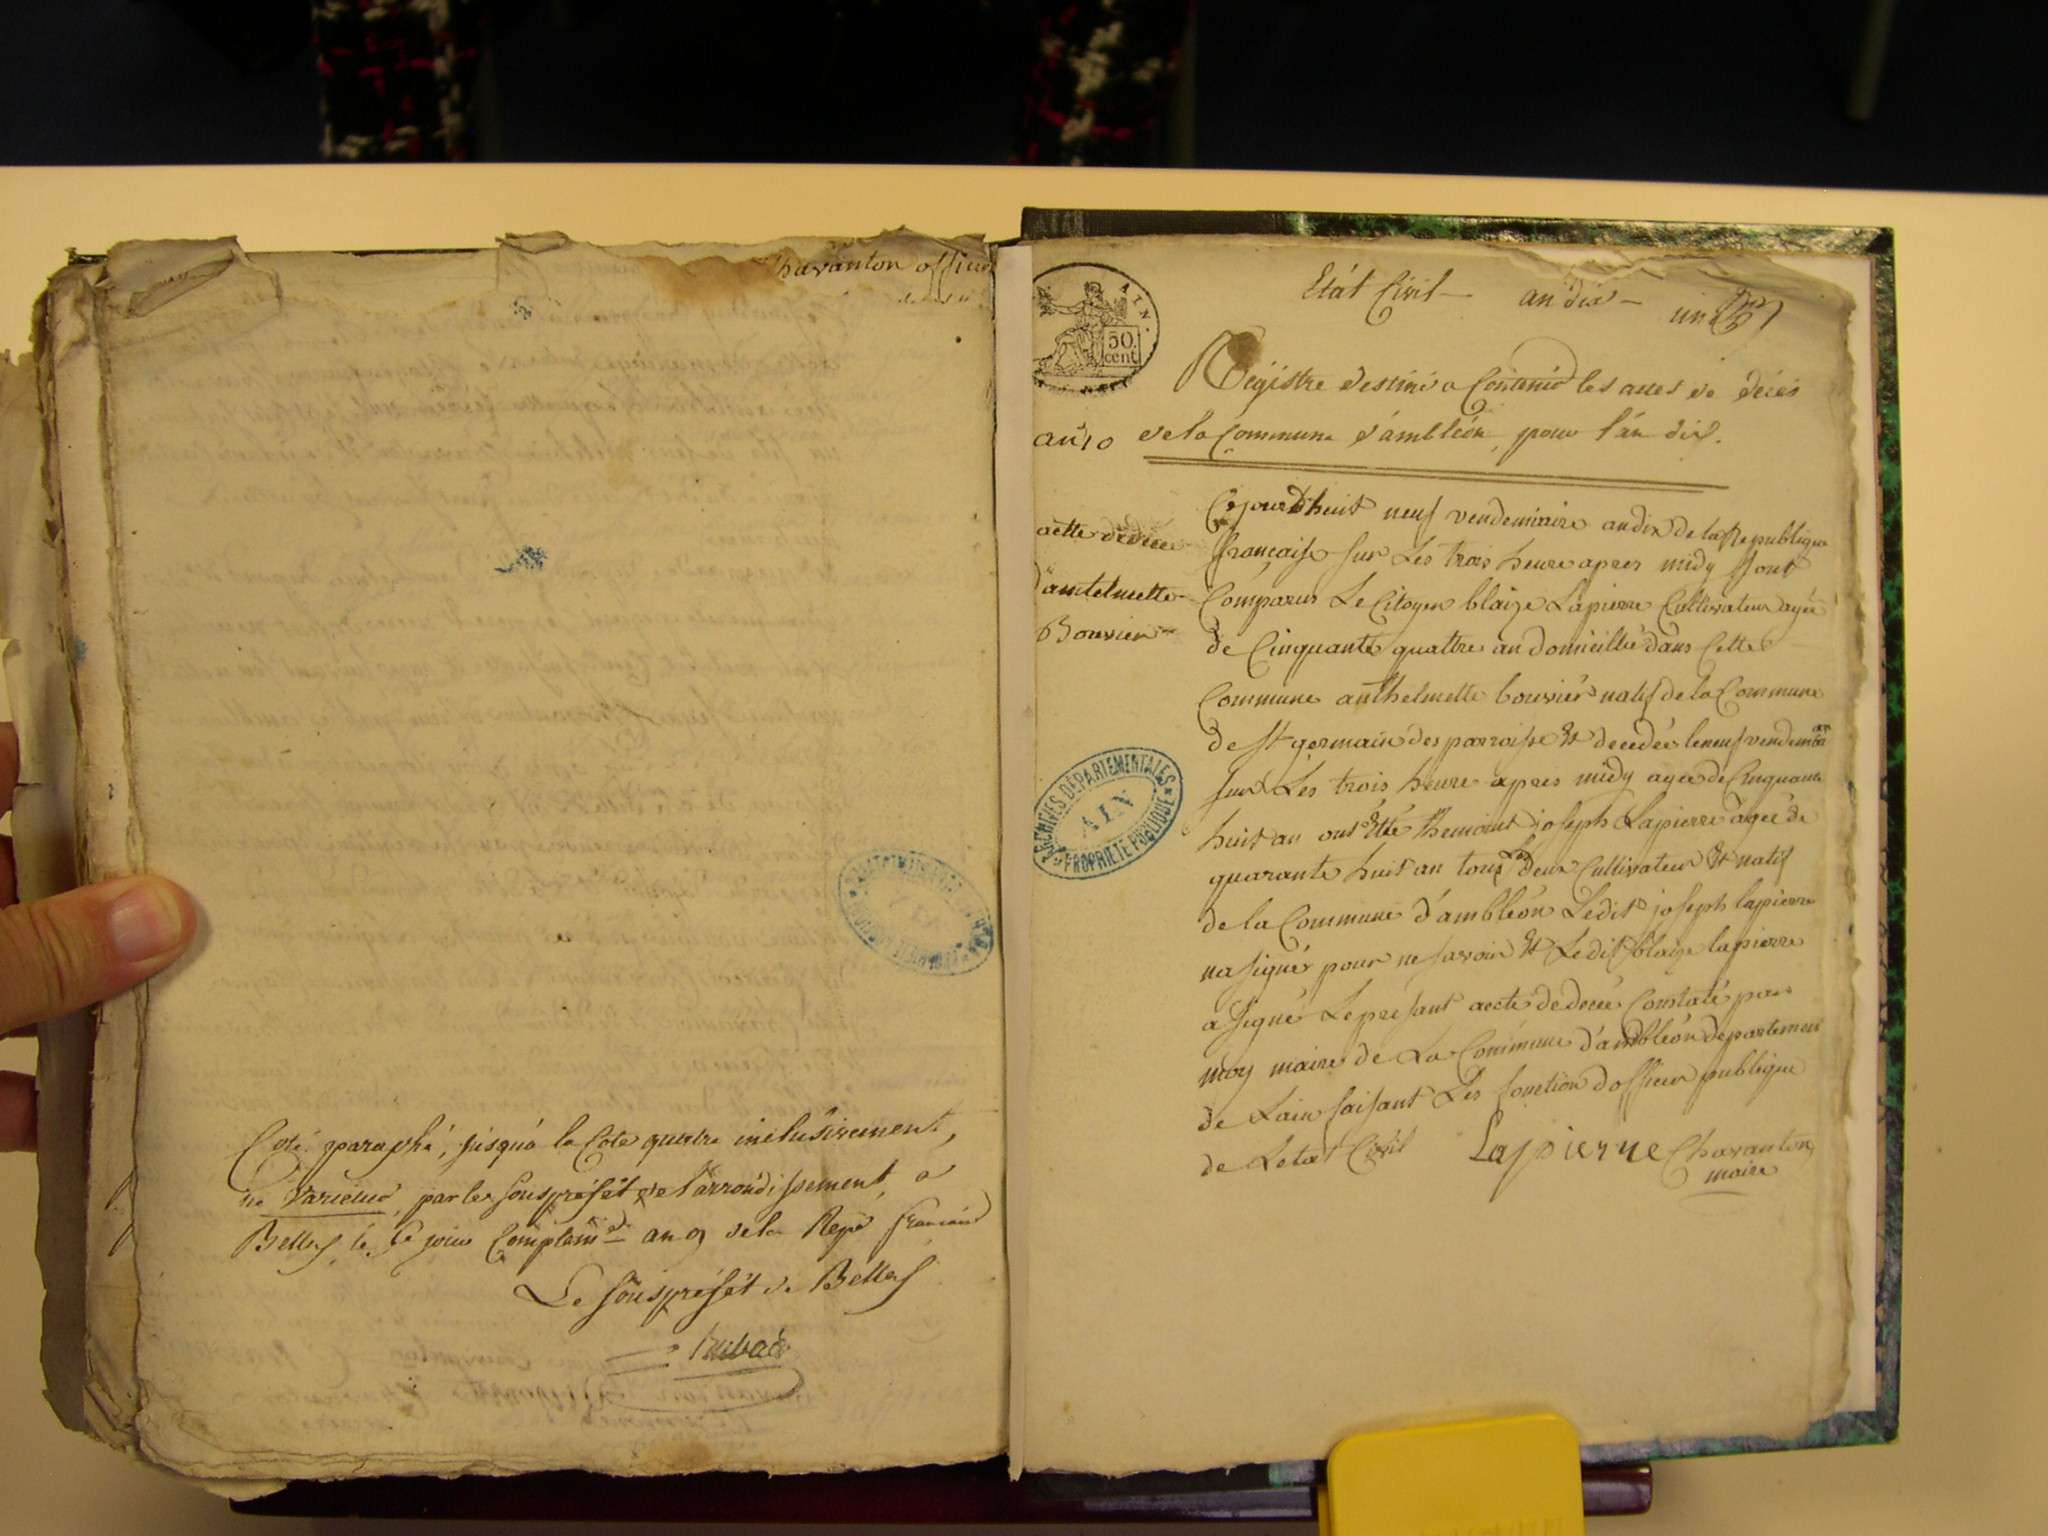 havanton officie
Coté, paraphé, jusqu'à la Cote quatre inclusivement,
ne varietur, par le sousprefét de l'arrondissement, a
Belley, le 5e jour Complemre an 9 de la Repe francaise
Le sousprefét de Belley
AIN.
50.
cent
Etât Civil — an dix — un
Registre destiné a Contenir les actes de décès
an 10
de la Commune d'ambléon, pour l'an dix.
Cejourdhuit neuf vendemiaire an dix de la Republique
acttes de décée
française sur Les trois heure apres midy sont
d'antelmette
Comparus Le Citoyen blaize Lapierre Cultivateur agée
Bouvier
de Cinquante quattre an domicillié dans Cette
Commune anthelmette bouvier natif de la Commune
de st germain des parroisse et decedée le neuf vendem
sur Les trois heure apres midy agée de Cinquante
huit an ont Etté themoint joseph Lapierre âgée de
quarante huit an tous Les deux Cultivateur et natif
de la Commune d'ambléon Ledit joseph lapierre
na signér pour ne savoir et Ledit blaize lapierre
a signé Le présant acete de decée Constaté par
moy maire de La Commune d'ambléon departement
de Lain faisant Les fonction dofficier publique
de Letat Civil Lapierne Chavanton
maire
ARCHIVES DÉPARTEMENTALES
AIN
PROPRIÉTÉ PUBLIQUE